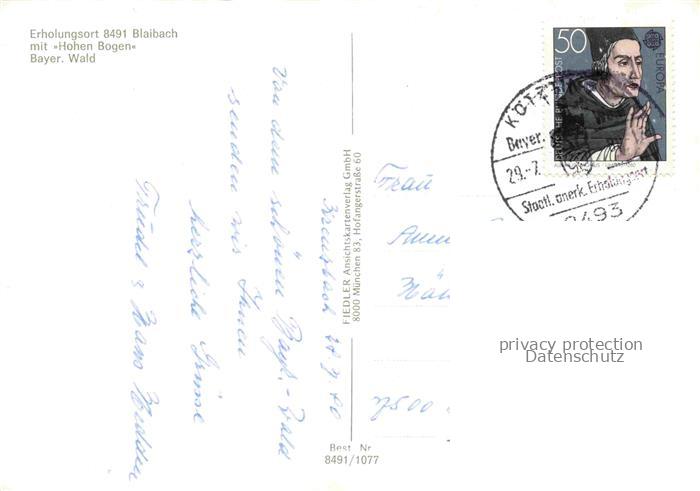 Erholungsort 8491 Blaibach
mit »Hohen Bogen«
Bayer. Wald
28.7.80
Von dem schönen Bayr.-Wald
senden wir Ihnen
herzliche Grüsse
Trudel & Hans
FIEDLER Ansichtskartenverlag GmbH
8000 München 83, Hofangerstraße 60
Best Nr
8491/1077
50
EUROPA
DEUTSCHE BUNDESPOST
Bayer.
29.-7.
Staatl. anerk. Erholungsort
8493
Frau
7500
privacy protection
Datenschutz